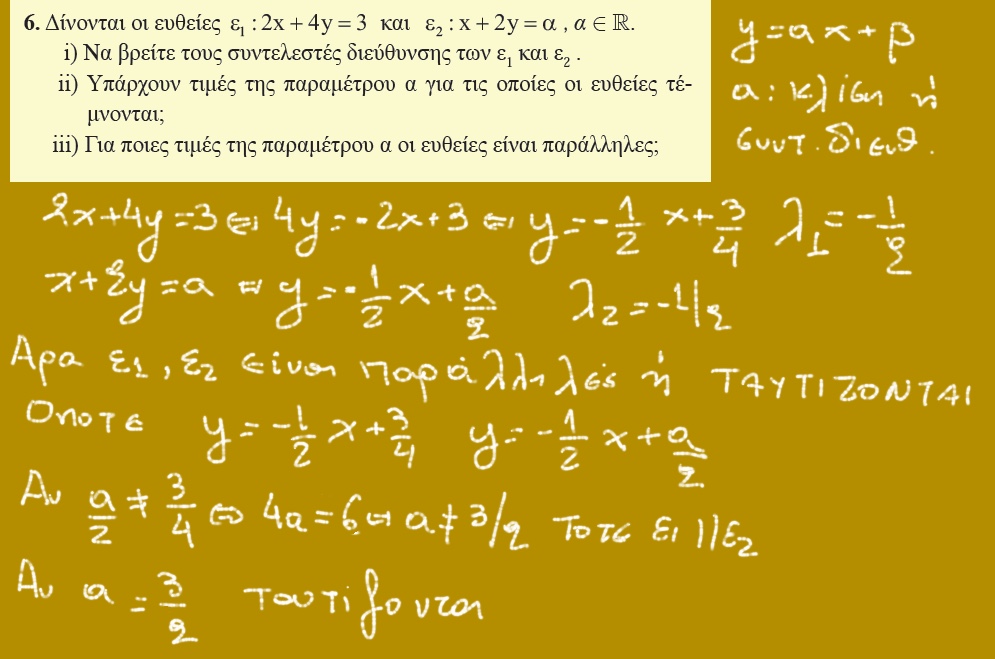 6. Δίνονται οι ευθείες ε₁ : 2x + 4y = 3 και ε₂ : x + 2y = α , α ∈ ℝ.
i) Να βρείτε τους συντελεστές διεύθυνσης των ε₁ και ε₂ .
ii) Υπάρχουν τιμές της παραμέτρου α για τις οποίες οι ευθείες τέ-
μνονται;
iii) Για ποιες τιμές της παραμέτρου α οι ευθείες είναι παράλληλες;
y = αx + β
α : κλίση ή
συντ. διευθ.
2x+4y=3 ⇔ 4y=-2x+3 ⇔ y=-1/2 x+3/4 λ₁=-1/2
x+2y=α ⇔ y=-1/2 x+α/2 λ₂=-1/2
Αρα ε₁, ε₂ είναι παράλληλες ή ΤΑΥΤΙΖΟΝΤΑΙ
Οποτε y=-1/2 x+3/4 y=-1/2 x+α/2
Αν α/2 ≠ 3/4 ⇔ 4α=6 ⇔ α≠3/2 Τοτε ε₁ //ε₂
Αν α = 3/2 ταυτιζονται